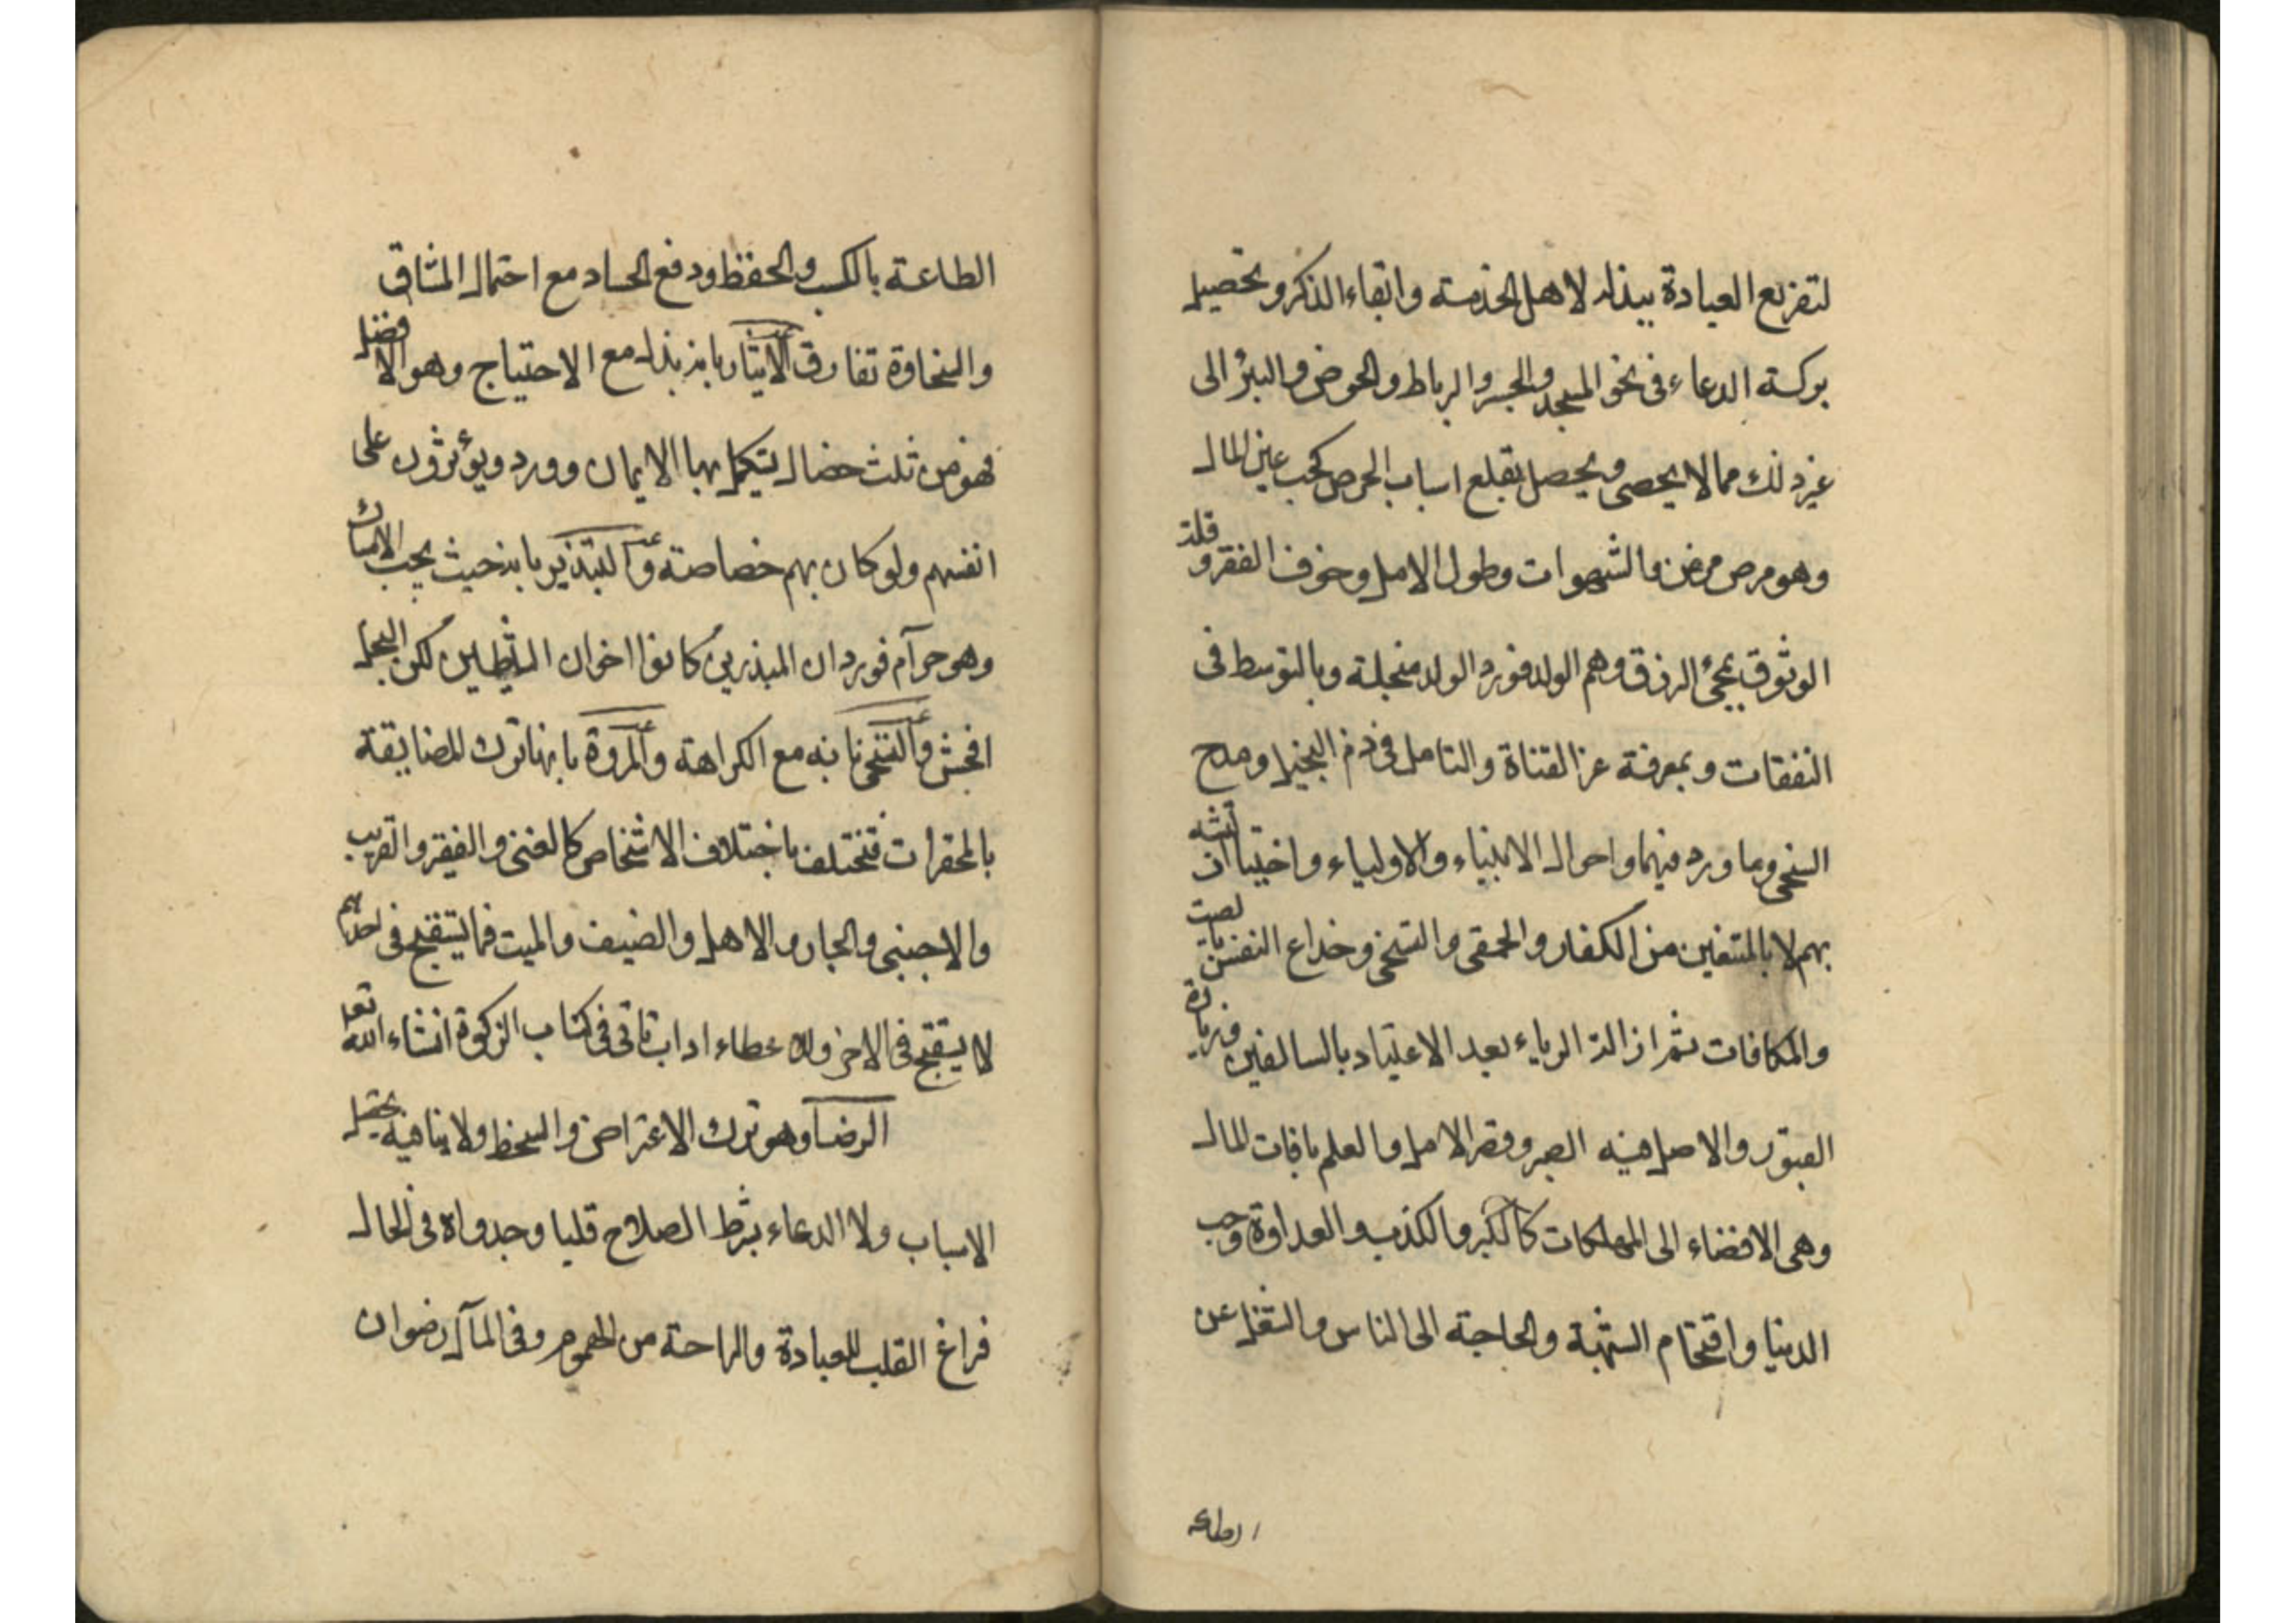 لتفريع العبادة ببذله لاهل الخدمته وابقاء الذكر وتحصيل
بركته الدعاء فى نحو المسجد والجسر والرباط والحوض والبئر الى
غير ذلك مما لا يحصى ويحصل بقلع اسباب الحرص كحب عين المال
وهو مرض مزمن والشهوات وطول الامل وخوف الفقر وقلة
الوثوق بمجئ الرزق وهم الولد فورد الولد منجلة وبالتوسط فى
النفقات وبمعرفة عز القناة والتامل فى ذم البخيل ومدح
السخى وما ورد فيهما واحوال الانبياء والاولياء واختيار ان تشبه
بهم لا بالمتنعمين من الكفار والحمقى والتسخى وخداع النفس بالصيت
والمكافات ثم ازالة الرياء بعد الاعتياد بالسالفين وزيارة
القبور والاصل فيه الصبر وقصر الامل والعلم بافات المال
وهى الافضاء الى المهلكات كالكبر والكذب والعداوة وحب
الدنيا واقتحام الشبهة والحاجة الى الناس والشغل عن
الطاعة
الطاعة بالكسب والحفظ ودفع الحساد مع احتمال المشاق
والسخاوة تفارق الايثار بانه بذل مع الاحتياج وهو الافضل
فهو من ثلث خصال يستكمل بها الايمان وورد ويؤثرون على
انفسهم ولو كان بهم خصاصة والتبذير بانه حيث يجب الامساك
وهو حرآم فورد ان المبذرين كانوا اخوان الشيطين لكن البخل
افحش والتسخى بانه مع الكراهة والمروة بانها ترك المضايقة
بالمحقرات فتختلف باختلاف الاشخاص كالغنى والفقير والقريب
والاجنبى والجار والاهل والضيف والميت فما يستقبح فى احدهم
لا يستقبح فى الاخر وللاعطاء اداب تاتى فى كتاب الزكوة انشاء الله تعالى
الرضا وهو ترك الاعتراض والسخط ولا ينافيه تحتمل
الاسباب ولا الدعاء بشرط الصلاح قلبا وجدواه فى الحال
فراغ القلب للعبادة والراحة من الهموم وفى المآل رضوان